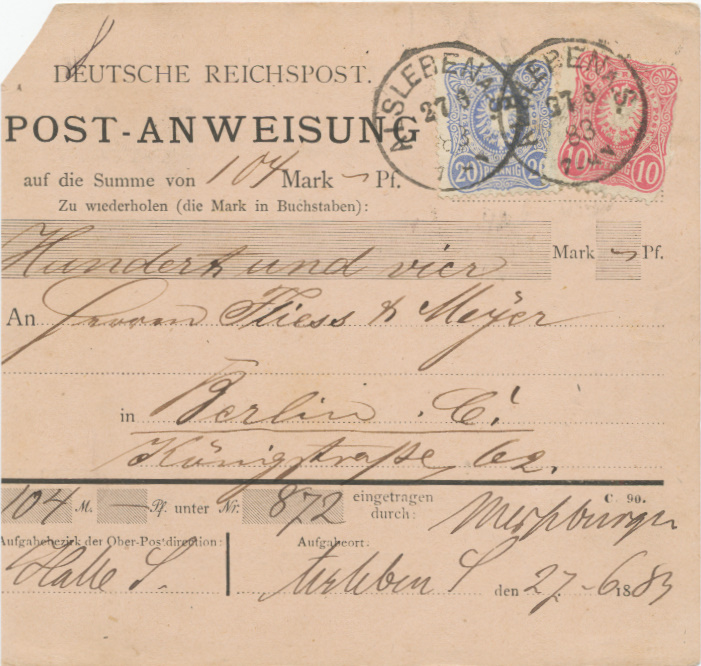 DEUTSCHE REICHSPOST.
POST-ANWEISUNG
auf die Summe von 104 Mark — Pf.
Zu wiederholen (die Mark in Buchstaben):
Hundert und vier Mark — Pf.
An Herrn Fliess & Meyer
in Berlin C!
Königstraße 62.
104 M. — Pf. unter Nr. 872 eingetragen durch:
C. 90.
Aufgabebezirk der Ober-Postdirection: Aufgabeort:
Halle S. Alsleben S den 27-6 1883
ALSLEBEN A. S.
27 6
83
7-8 N
20 PFENNIG 20
ALSLEBEN A. S.
27 6
83
10 10